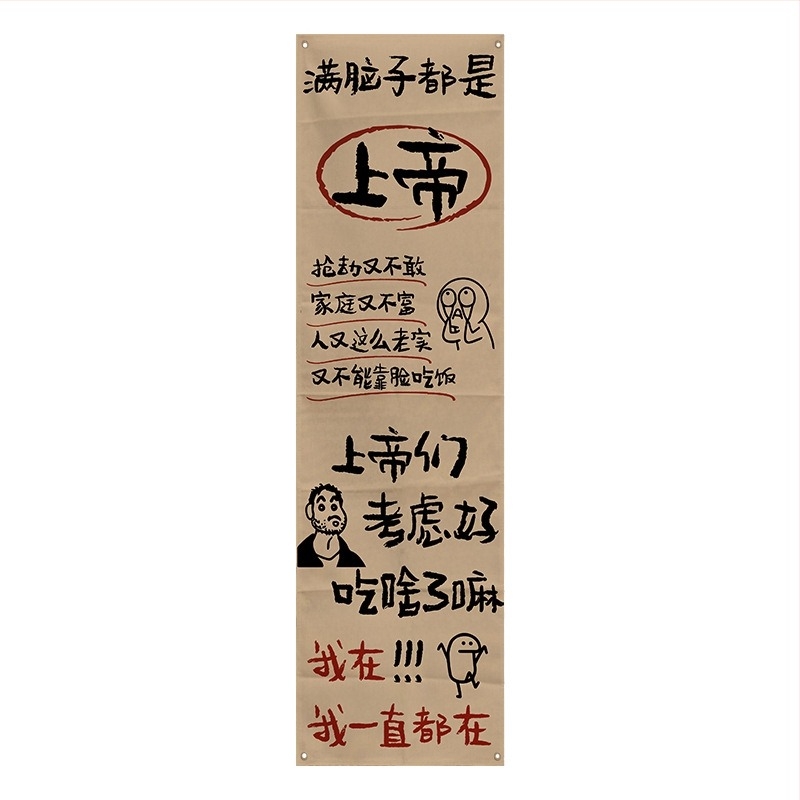 满脑子都是
上帝
抢劫又不敢
家庭又不富
人又这么老实
又不能靠脸吃饭
上帝们
考虑好
吃啥了嘛
我在!!!
我一直都在